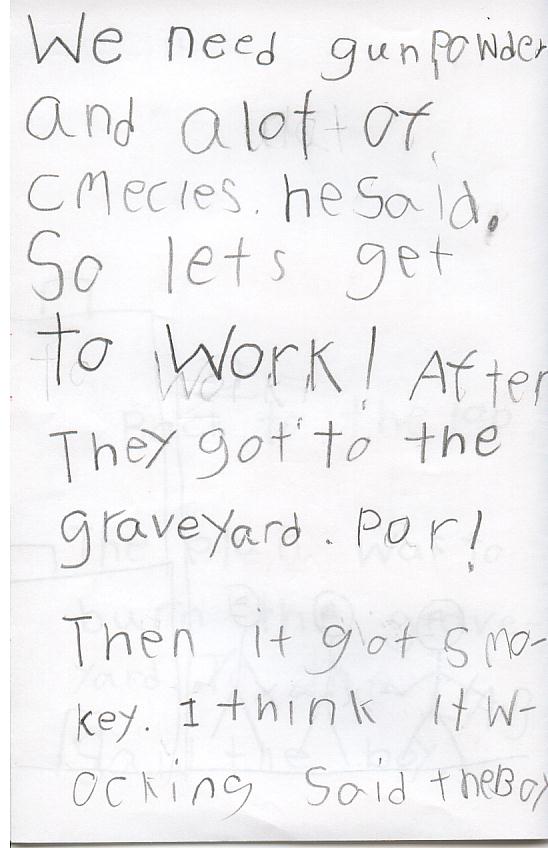 We need gunpowder
and alot of
cMecies. he Said.
So lets get
to Work! After
They got to the
graveyard. Por!
Then it got smo-
key. I think it w-
ocking Said theBoy